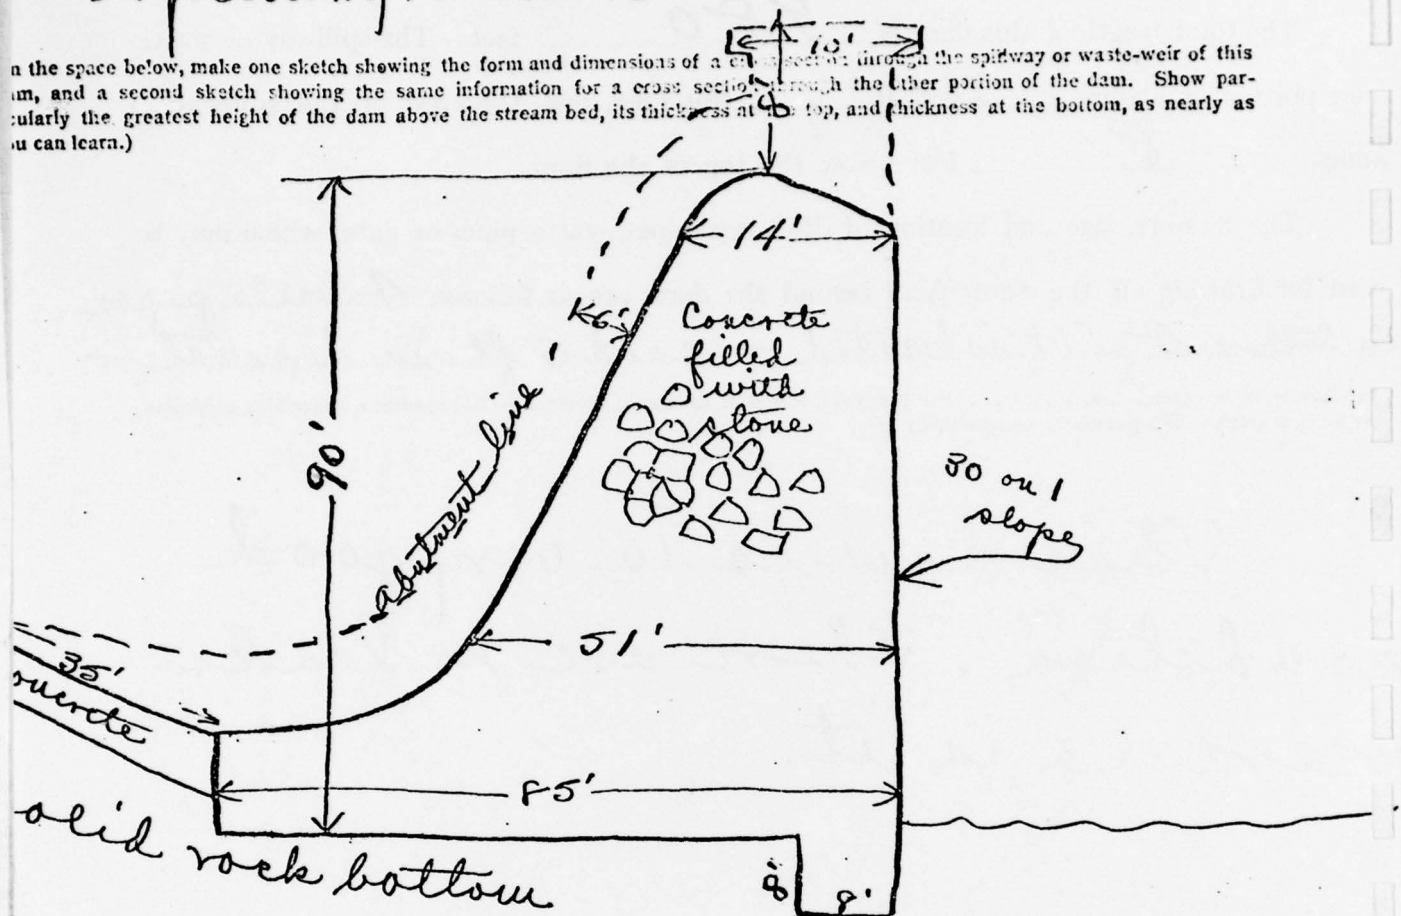 10'
n the space below, make one sketch showing the form and dimensions of a cross section through the spillway or waste-weir of this
am, and a second sketch showing the same information for a cross section through the other portion of the dam. Show par-
cularly the greatest height of the dam above the stream bed, its thickness at the top, and thickness at the bottom, as nearly as
u can learn.)
8'
14'
6'
Concrete
filled
with
stone
90'
abutment line
30 on 1
slope
51'
35'
oncrete
85'
olid rock bottom
8'
8'